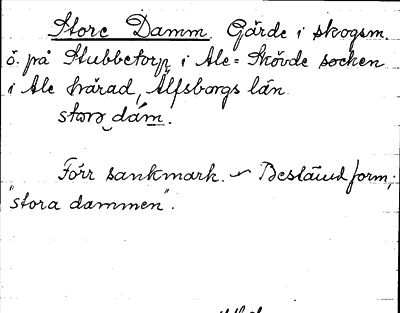 Store Damm. Gärde i skogsm.
ö. på Stubbetorp, i Ale-Skövde socken
i Ale härad, Älfsborgs län.
storo dám.
Förr sankmark. – Bestämd form;
"stora dammen".